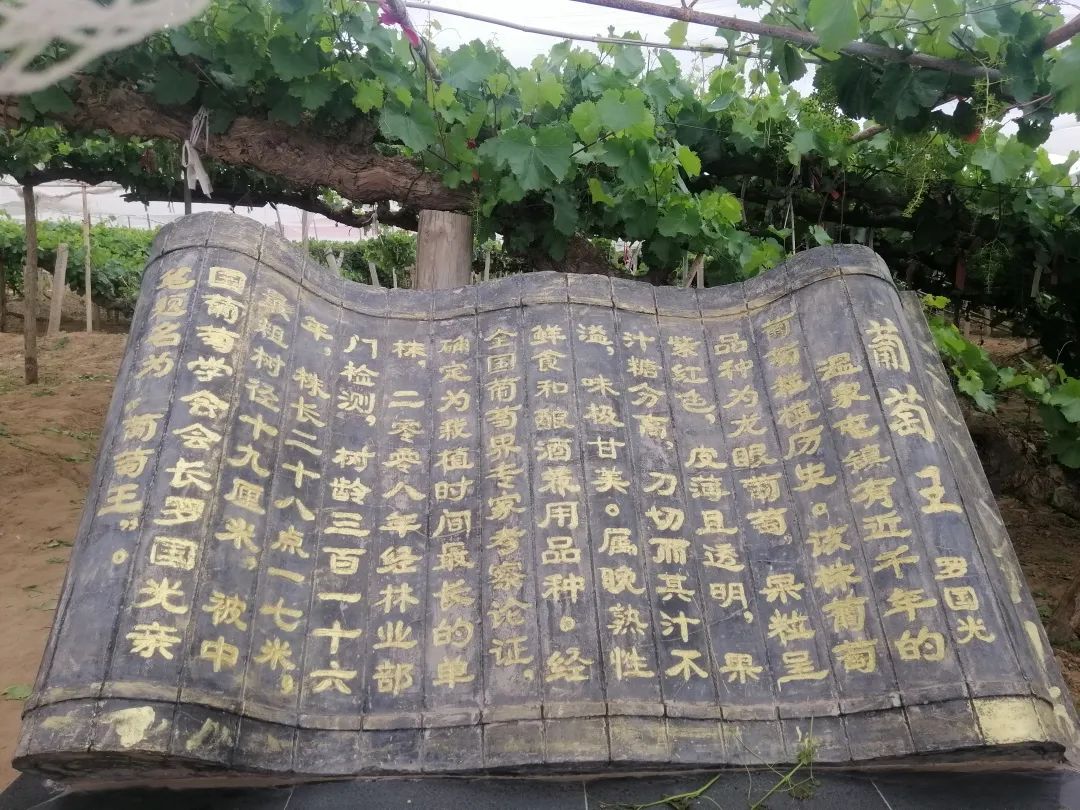 葡萄王 罗国光
温泉屯镇有近千年的
葡萄栽植历史。该株葡萄
品种为龙眼葡萄，果粒呈
紫红色，皮薄且透明，果
汁糖分高，刀切而其汁不
溢，味极甘美。属晚熟性
鲜食和酿酒兼用品种。经
全国葡萄界专家考察论证，
确定为栽植时间最长的单
株，二零零八年经林业部
门检测，树龄三百一十六
年，株长二十八点一七米，
最粗树径十九厘米，被中
国葡萄学会会长罗国光亲
笔题名为“葡萄王”。